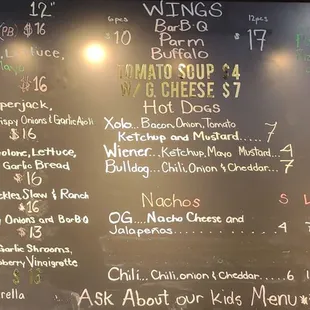 12"
(PB) $16
Lettuce,
$16
perjack,
rispy Onions & Garlic Aioli
$16
olone, Lettuce,
Garlic Bread
$16
ckles Slaw & Ranch
$16
y Onions and Bar-B-Q
$13
Garlic Shrooms,
pberry Vinaigrette
$13
rella
WINGS
6pcs 12pcs
$10 BarB-Q $17
Parm
Buffalo
TOMATO SOUP $4
W/ G. CHEESE $7
Hot Dogs
Xolo... Bacon, Onion, Tomato
Ketchup and Mustard..... 7
Wiener... Ketchup, Mayo Mustard... 4
Bulldog... Chili, Onion & Cheddar..... 7
Nachos S L
OG.... Nacho Cheese and
Jalapeños................ 4
Chili... Chili, onion & Cheddar.. 6
Ask About our kids Menu*